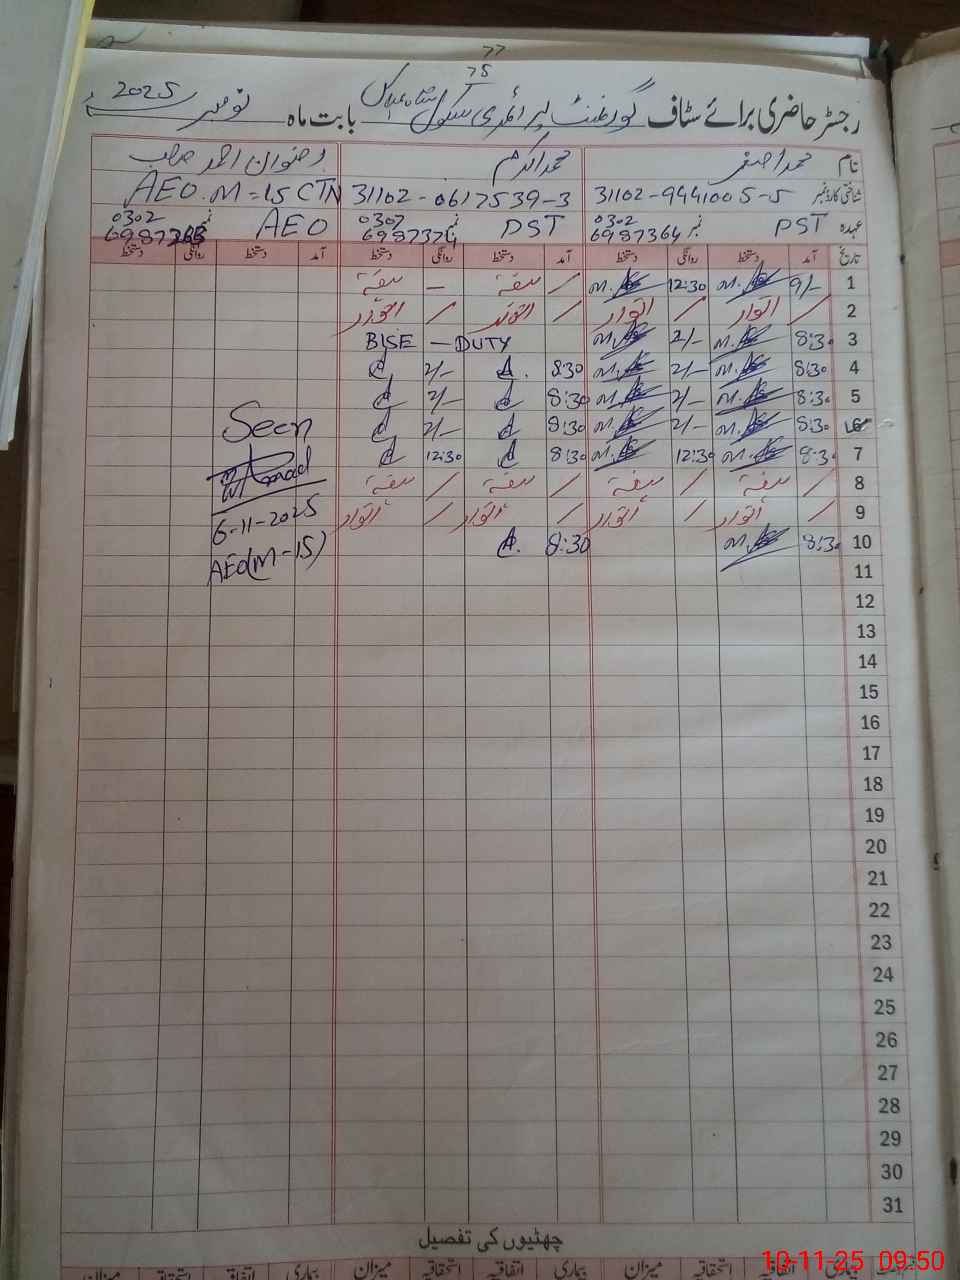 77
75
رجسٹر حاضری برائے سٹاف گورنمنٹ پرائمری سکول بابت ماہ نومبر 2025ء
نام محمد آصف محمد اکرم رضوان احمد صاحب
شناختی کارڈ نمبر 31102-9441005-5 31102-0617539-3 AEO.M=15 CTN
عہدہ PST نمبر 0302 6987364 PST نمبر 0307 6987374 AEO نمبر 0302
تاریخ آمد دستخط روانگی دستخط آمد دستخط روانگی دستخط آمد دستخط روانگی دستخط
1 9/- M. 12:30 M. / ہفتہ - ہفتہ
2 / اتوار / اتوار / اتوار / اتوار
3 8:30 M. 2/- M. BISE - DUTY
4 8:30 M. 2/- M. 8:30 A. 2/-
5 8:30 M. 2/- M. 8:30 2/-
6 8:30 M. 2/- M. 8:30 2/- Seen
7 8:30 M. 12:30 M. 8:30 12:30
8 / ہفتہ / ہفتہ / ہفتہ / ہفتہ
9 / اتوار / اتوار / اتوار / اتوار 6-11-2025
10 8:30 M. 8:30 A. AEO(M-15)
11
12
13
14
15
16
17
18
19
20
21
22
23
24
25
26
27
28
29
30
31
چھٹیوں کی تفصیل
بیماری میزان استحقاقیہ اتفاقیہ بیماری میزان استحقاقیہ اتفاقیہ بیماری میزان
10-11-25 09:50